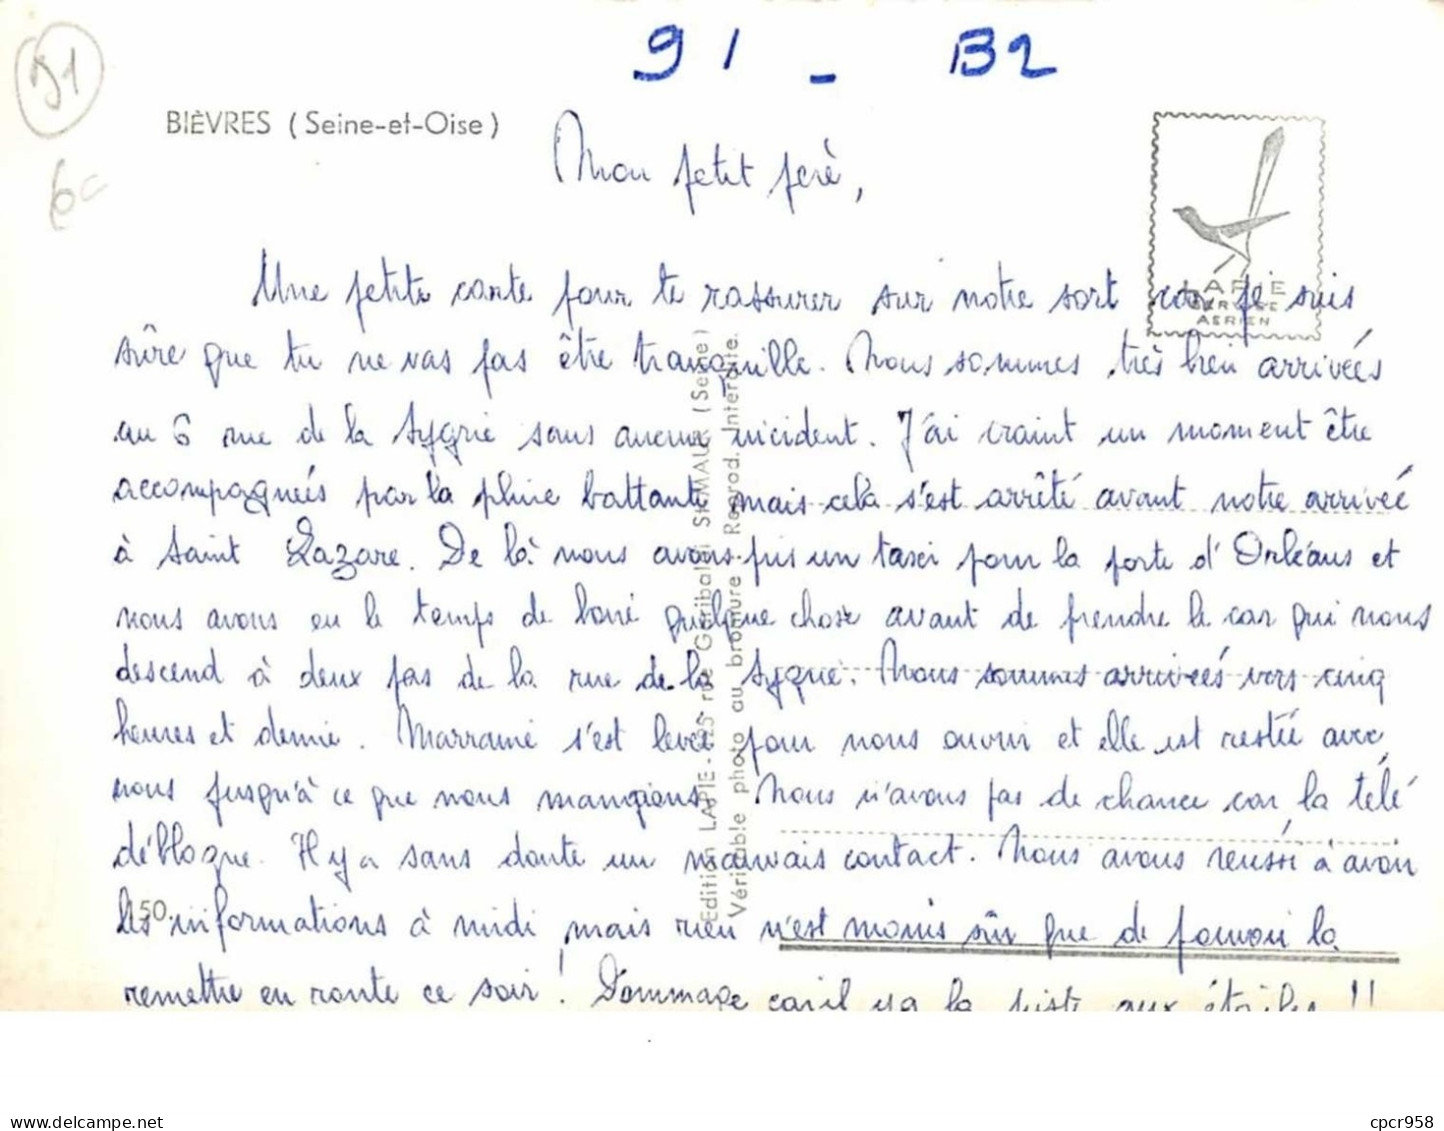 91 - B2
91
6€
BIÈVRES (Seine-et-Oise)
LAPIE
SERVICE
AERIEN
Mon petit père,
Une petite carte pour te rassurer sur notre sort car je suis
sûre que tu ne vas pas être tranquille. Nous sommes très bien arrivées
au 6 rue de la sans aucun incident. J'ai craint un moment être
accompagnées par la pluie battante mais celà s'est arrêté avant notre arrivée
à Saint Lazare. De là nous avons pris un taxi pour la porte d'Orléans et
nous avons eu le temps de boire quelque chose avant de prendre le car qui nous
descend à deux pas de la rue de la. Nous sommes arrivées vers cinq
heures et demie. Marraine s'est levée pour nous ouvrir et elle est restée avec
nous jusqu'à ce que nous mangions. Nous n'avons pas de chance car la télé
débloque. Il y a sans doute un mauvais contact. Nous avons réussi à avoir
les informations à midi mais rien n'est moins sûr que de pouvoir la
remettre en route ce soir ! Dommage car il y a la piste aux étoiles !!
150.
Edition LAPIE - 125 rue Garibaldi St-MAUR (Seine)
Véritable photo au bromure. Reprod. Interdite.
delcampe.net
cpcr958